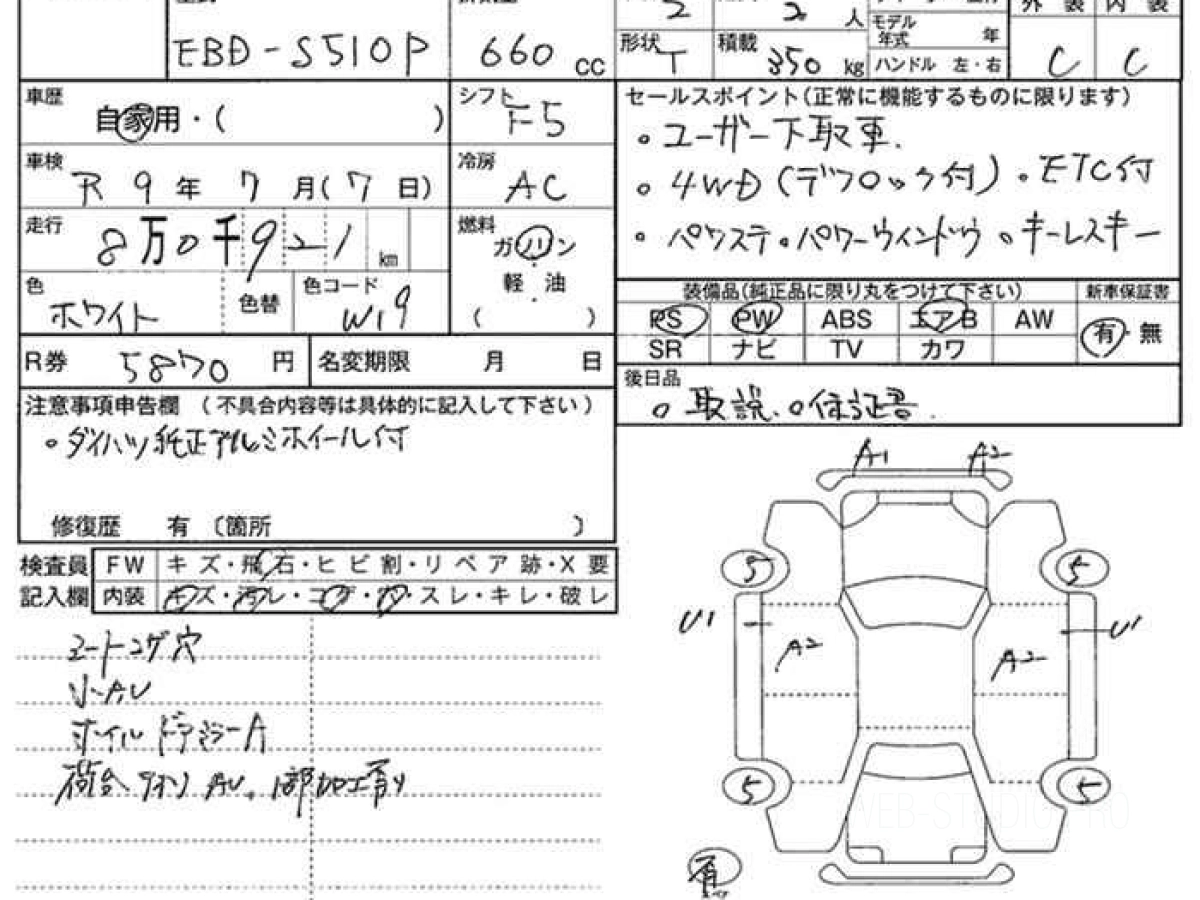 EBD-S510P 660 cc
2 2 人 モデル年式 年 外装 内装
形状 T 積載 350 kg ハンドル 左・右 C C
車歴 自家用・( )
シフト F5
セールスポイント(正常に機能するものに限ります)
。ユーザー下取車.
車検 R 9 年 7 月(7 日)
冷房 AC
。4WD(デフロック付)。ETC付
走行 8万0千921 km
燃料 ガソリン
軽油
( )
。パワステ。パワーウィンドウ。キーレスキー
色 ホワイト 色替 色コード W19
装備品(純正品に限り丸をつけて下さい) 新車保証書
PS PW ABS エアB AW 有・無
SR ナビ TV カワ
R券 5870 円 名変期限 月 日
後日品
。取説.。保証書.
注意事項申告欄 (不具合内容等は具体的に記入して下さい)
。ダイハツ純正アルミホイール付
修復歴 有 〔箇所 )
検査員記入欄
FW キズ・飛石・ヒビ割・リペア跡・X要
内装 キズ・汚レ・コゲ・穴・スレ・キレ・破レ
シートコゲ穴
リーAU
ホイル ドアミラーA
荷台 AU. 1部加工有り
A1 A2
5 5
U1 U1
A2 A2
5 5
WEB-STUDIO.PRO